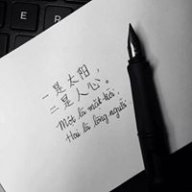 一是太阳,
二是人心。
"Một là mặt trời,
Hai là lòng người"